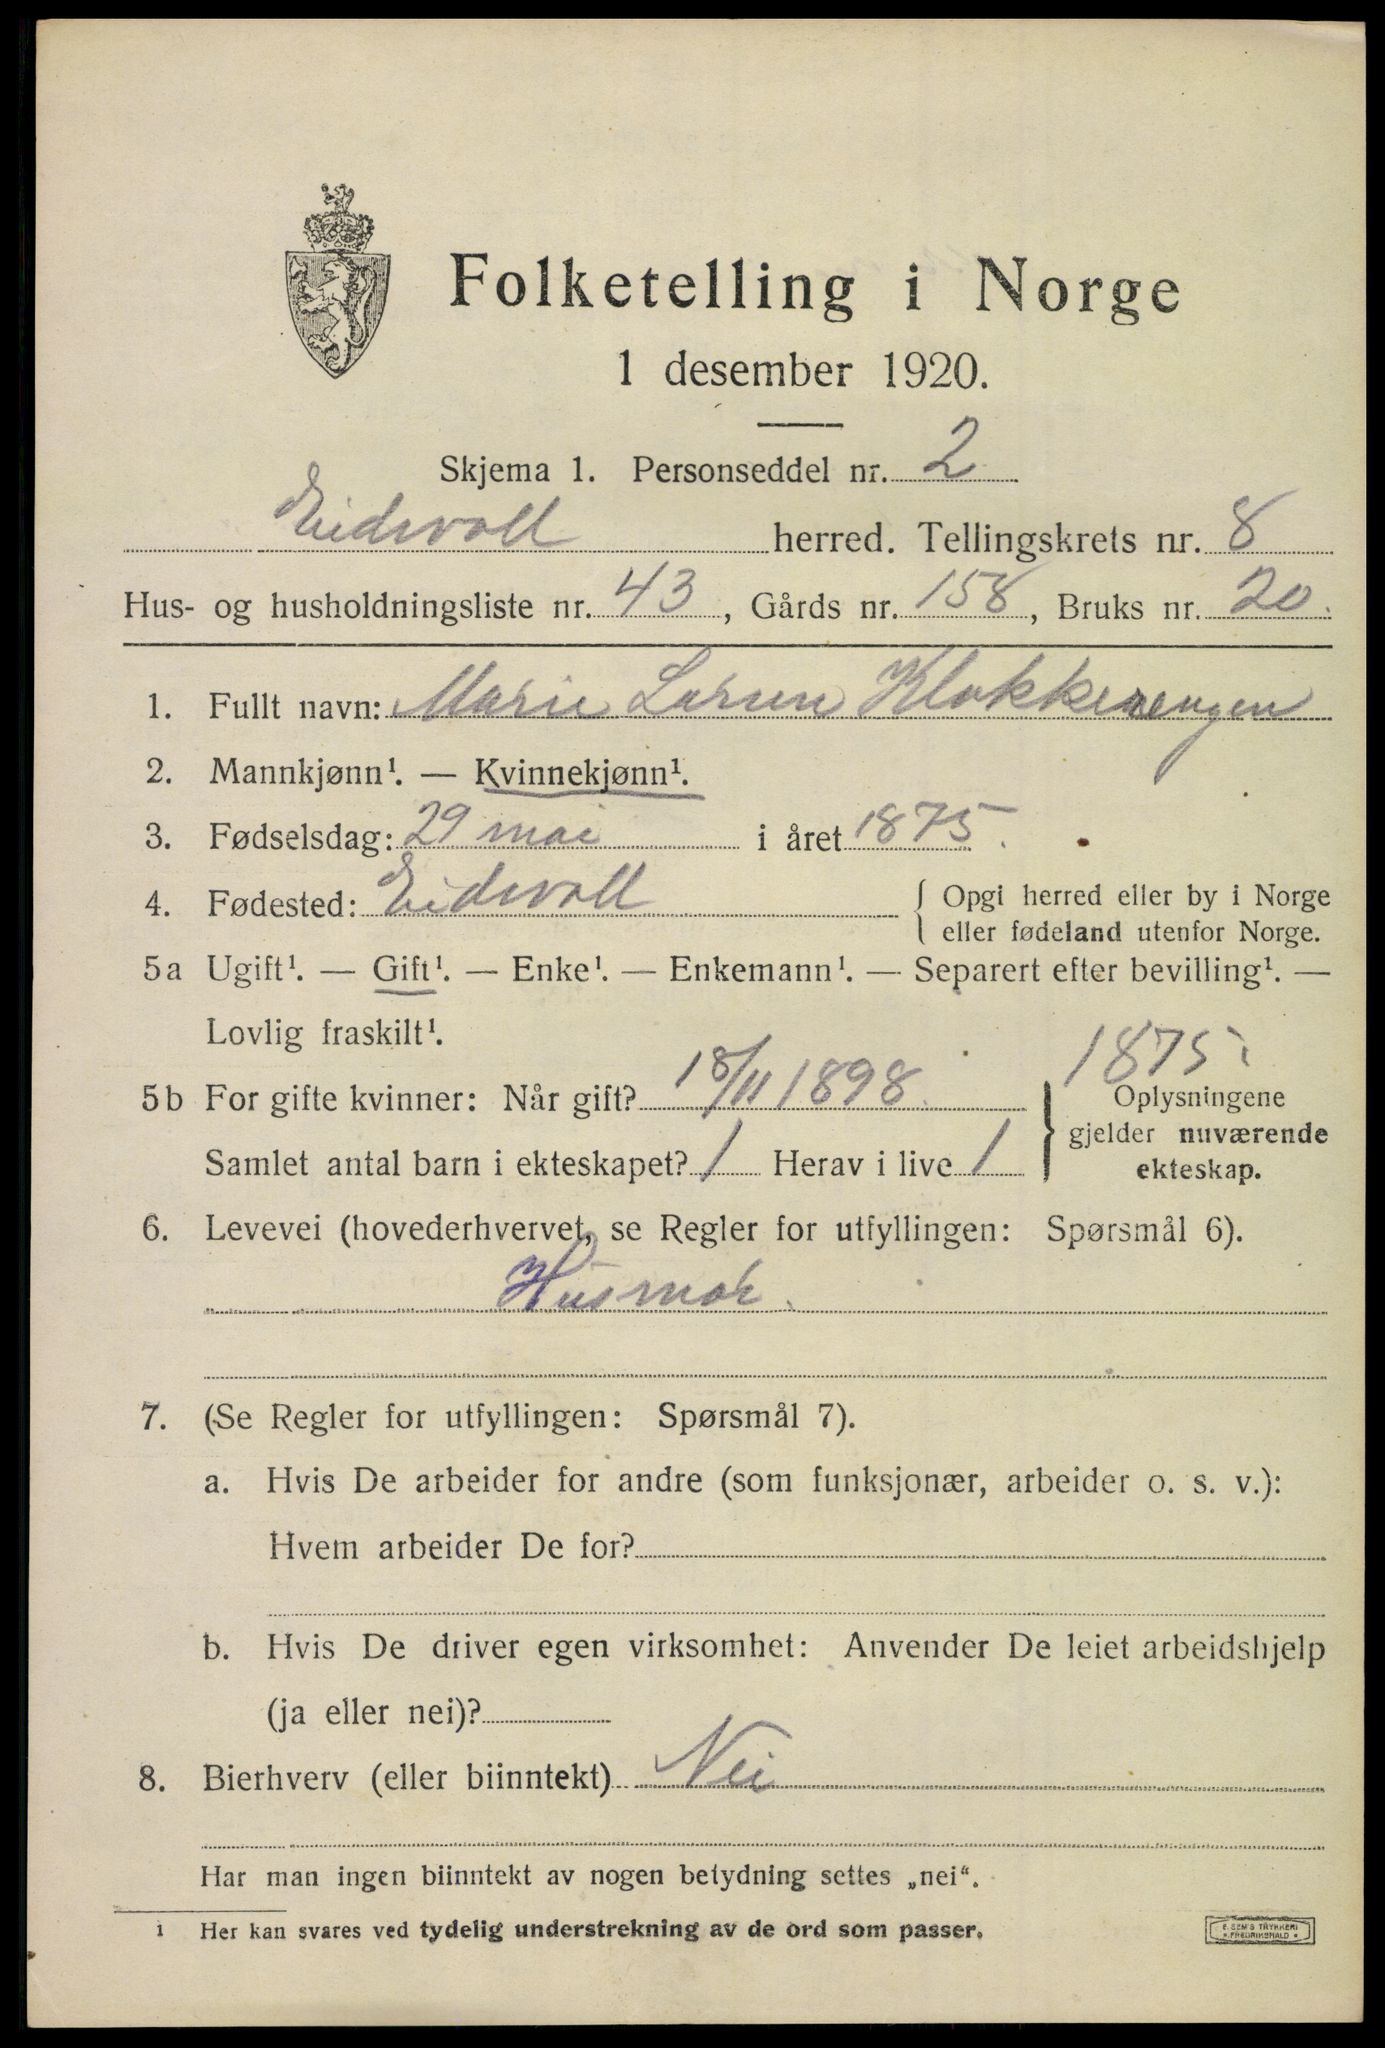 Folketelling i Norge
1 desember 1920.
Skjema 1. Personseddel nr. 2
Eidsvoll herred. Tellingskrets nr. 8
Hus- og husholdningsliste nr. 43, Gårds nr. 158, Bruks nr. 20.
1. Fullt navn: Marie Larsen Klokkerengen
2. Mannkjønn¹. — Kvinnekjønn¹.
3. Fødselsdag: 29 mai i året 1875.
4. Fødested: Eidsvoll { Opgi herred eller by i Norge
eller fødeland utenfor Norge.
5a Ugift¹. — Gift¹. — Enke¹. — Enkemann¹. — Separert efter bevilling¹. —
Lovlig fraskilt¹.
1875
5b For gifte kvinner: Når gift? 18/11 1898. Oplysningene
gjelder nuværende
Samlet antal barn i ekteskapet? 1 Herav i live 1 ekteskap.
6. Levevei (hovederhvervet, se Regler for utfyllingen: Spørsmål 6).
Husmor.
7. (Se Regler for utfyllingen: Spørsmål 7).
a. Hvis De arbeider for andre (som funksjonær, arbeider o. s. v.):
Hvem arbeider De for?
b. Hvis De driver egen virksomhet: Anvender De leiet arbeidshjelp
(ja eller nei)?
8. Bierhverv (eller biinntekt) Nei
Har man ingen biinntekt av nogen betydning settes „nei“.
1 Her kan svares ved tydelig understrekning av de ord som passer.
E. SEM'S TRYKKERI
FREDRIKSHALD